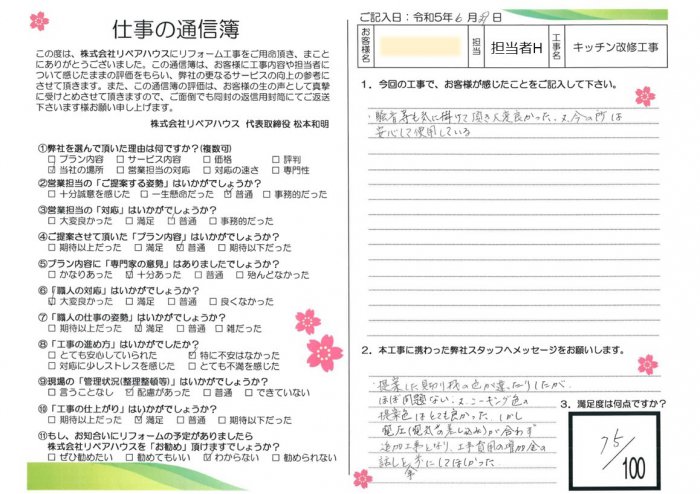 仕事の通信簿
この度は、株式会社リペアハウスにリフォーム工事をご用命頂き、まこと
にありがとうございました。この通信簿は、お客様に工事内容や担当者に
ついて感じたままの評価をもらい、弊社の更なるサービスの向上の参考に
させて頂きます。また、この通信簿の評価は、お客様の生の声として真摯
に受けとめさせて頂きますので、ご面倒でも同封の返信用封筒にてご返送
下さいます様お願い申し上げます。
株式会社リペアハウス 代表取締役 松本和明
①弊社を選んで頂いた理由は何ですか?(複数可)
□ プラン内容 □ サービス内容 □ 価格 □ 評判
☑ 当社の場所 □ 営業担当の対応 □ 対応の速さ □ 専門性
②営業担当の「ご提案する姿勢」はいかがでしょうか?
□ 十分誠意を感じた □ 一生懸命だった ☑ 普通 □ 事務的だった
③営業担当の「対応」はいかがでしょうか?
□ 大変良かった □ 満足 ☑ 普通 □ 事務的だった
④ご提案させて頂いた「プラン内容」はいかがでしょうか?
□ 期待以上だった □ 満足 ☑ 普通 □ 期待以下だった
⑤プラン内容に「専門家の意見」はありましたでしょうか?
□ かなりあった ☑ 十分あった □ 普通 □ 殆んどなかった
⑥「職人の対応」はいかがでしょうか?
☑ 大変良かった □ 満足 □ 普通 □ 良くなかった
⑦「職人の仕事の姿勢」はいかがでしょうか?
□ 期待以上だった ☑ 満足 □ 普通 □ 雑だった
⑧「工事の進め方」はいかがでしたか?
□ とても安心していられた ☑ 特に不安はなかった
□ 対応に少しストレスを感じた □ とても不満を感じた
⑨現場の「管理状況(整理整頓等)」はいかがでしょうか?
□ 言うことなし ☑ 配慮があった □ 普通 □ できていない
⑩「工事の仕上がり」はいかがでしょうか?
□ 期待以上だった ☑ 満足 □ 普通 □ 期待以下だった
⑪もし、お知合いにリフォームの予定がありましたら
株式会社リペアハウスを「お勧め」頂けますでしょうか?
□ ぜひ勧めたい □ 勧めてもいい ☑ わからない □ 勧められない
ご記入日:令和5年6月 日
お客様名
担当
担当者H
工事名
キッチン改修工事
1.今回の工事で、お客様が感じたことをご記入して下さい。
・騒音等も気に掛けて頂き大変良かった。又、今の所は
安心して使用している
2.本工事に携わった弊社スタッフへメッセージをお願いします。
・提案した見切り材の色が違ったりしたが、
ほぼ問題ない。又、コーキング色の
提案色はとても良かった。しかし
電圧(電気の差し込み)が合わず
追加工事となり、工事費用の増加金の
話しを事前にしてほしかった
3.満足度は何点ですか?
75/100